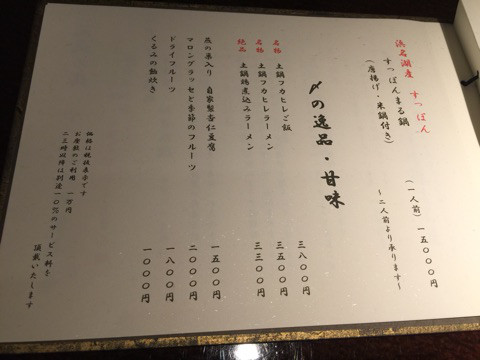 浜名湖産 すっぽん
すっぽんまる鍋 (一人前) 一五〇〇〇円
(唐揚げ・米鍋付き) 〜二人前より承ります〜
〆の逸品・甘味
名物 土鍋フカヒレご飯 三八〇〇円
名物 土鍋フカヒレラーメン 三五〇〇円
絶品 土鍋鶏煮込みラーメン 三三〇〇円
燕の巣入り 自家製杏仁豆腐 一五〇〇円
マロングラッセと季節のフルーツ 二〇〇〇円
ドライフルーツ 一八〇〇円
くるみの飴炊き 一〇〇〇円
価格は税抜表示です
お座敷のご利用 一万円
二三時以降は別途一〇%のサービス料を
頂戴いたします